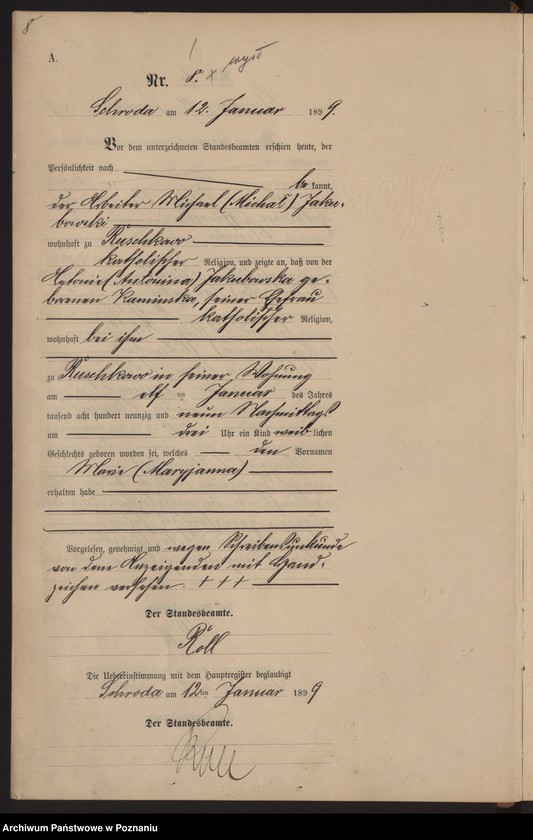 8
A.
Nr. 8.
Schroda am 12. Januar 1899.
Vor dem unterzeichneten Standesbeamten erschien heute, der
Persönlichkeit nach
bekannt,
der Arbeiter Michael (Michał) Jaku-
bowski
wohnhaft zu Ruschkowo
katholischer Religion, und zeigte an, daß von der
Antonie (Antonina) Jakubowska ge-
borenen Kaminska, seiner Ehefrau
katholischer Religion,
wohnhaft bei ihm
zu Ruschkowo in seiner Wohnung
am elf ten Januar des Jahres
tausend acht hundert neunzig und neun Nachmittags
um drei Uhr ein Kind weiblichen
Geschlechts geboren worden sei, welches den Vornamen
Marie (Maryjanna)
erhalten habe
Vorgelesen, genehmigt und wegen Schreibensunkunde
von dem Anzeigenden mit Hand-
zeichen versehen. + + +
Der Standesbeamte.
Röll
Die Uebereinstimmung mit dem Hauptregister beglaubigt
Schroda am 12ten Januar 1899
Der Standesbeamte.
Röll
Archiwum Państwowe w Poznaniu